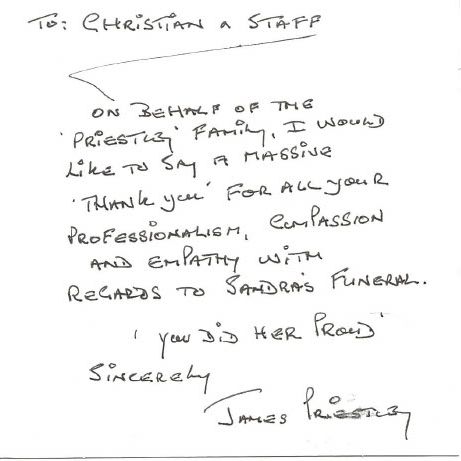 To: CHRISTIAN & STAFF
ON BEHALF OF THE
'PRIESTLEY' FAMILY, I WOULD
LIKE TO SAY A MASSIVE
'THANK YOU' FOR ALL YOUR
PROFESSIONALISM, COMPASSION
AND EMPATHY WITH
REGARDS TO SANDRA'S FUNERAL.
'YOU DID HER PROUD'
SINCERELY
JAMES PRIESTLEY